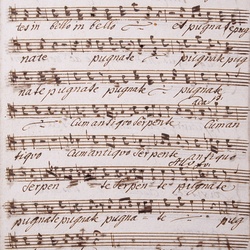 tes in bello in bello et pugnate pug
nate pugnate pugnate pug
nate pugnate pugnate pugnate
Cum antiquo serpente Cum an
tiquo Cum antiquo serpente antiquo
serpen te serpen te pugnate
pugnate pugnate pugna te pug